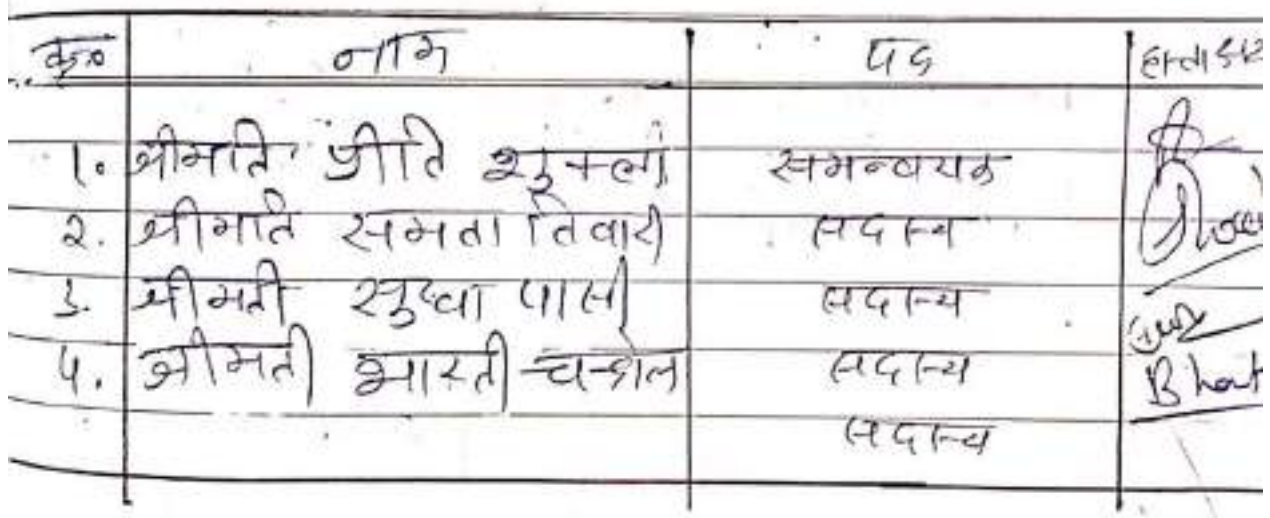 क्र० नाम पद हस्ताक्षर
1. श्रीमति प्रीति शुक्ला समन्वयक
2. श्रीमति समता तिवारी सदस्य
3. श्रीमती सुधा पासी सदस्य
4. श्रीमती भारती चन्देल सदस्य Bhart
सदस्य